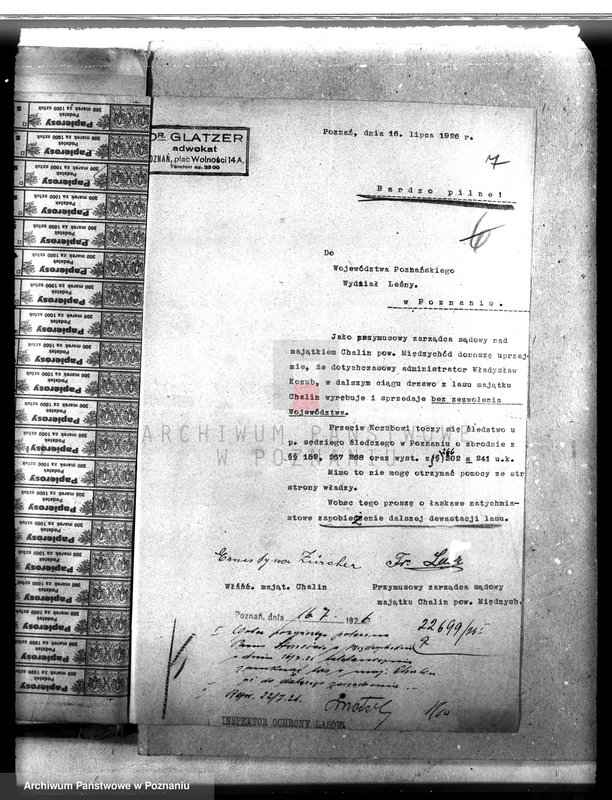 DR. GLATZER
adwokat
POZNAŃ, plac Wolności 14 A.
Telefon nr. 2300
Poznań, dnia 16. lipca 1926 r.
7
Bardzo pilne!
6
Do
Województwa Poznańskiego
Wydział Leśny.
w Poznaniu.
Jako przymusowy zarządca sądowy nad
majątkiem Chalin pow. Międzychód donoszę uprzej-
mie, że dotychczasowy administrator Władysław
Kozub, w dalszym ciągu drzewo z lasu majątku
Chalin wyrębuje i sprzedaje bez zezwolenia
Województwa.
Przeciw Kozubowi toczy się śledztwo u
p. sędziego śledczego w Poznaniu o zbrodnie z
§§ 159, 267 268 oraz wyst. z §§ 302 a 241 u.k.
Mimo to nie mogę otrzymać pomocy ze str
strony władzy.
Wobec tego proszę o łaskawe natychmia-
stowe zapobieżenie dalszej dewastacji lasu.
Ernestyna Zürcher
Właść. mająt. Chalin
Przymusowy zarządca sądowy
majątku Chalin pow. Międzych.
Poznań, dnia 16 7. 1926
22699/26
INSPEKTOR OCHRONY LASÓW
300 marek za 1000 sztuk
Podatek
Papierosy
ARCHIWUM PAŃSTWOWE
W POZNANIU
Archiwum Państwowe w Poznaniu